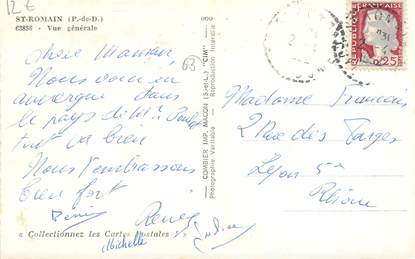 12 €
ST-ROMAIN (P.-de-D.)
63888 - Vue générale
63
Chère Maman,
Nous voici en
auvergne dans
le pays de
tout va bien
Nous t'embrassons
bien fort
Denis Renée
Michelle
« Collectionnez les Cartes Postales »
COMBIER IMP. MACON (S.-et-L.) "CIM"
Photographie Véritable - Reproduction Interdite
REPUBLIQUE FRANCAISE
0,25
Madame Francais
2 Rue des Farges
Lyon 5e
Rhône